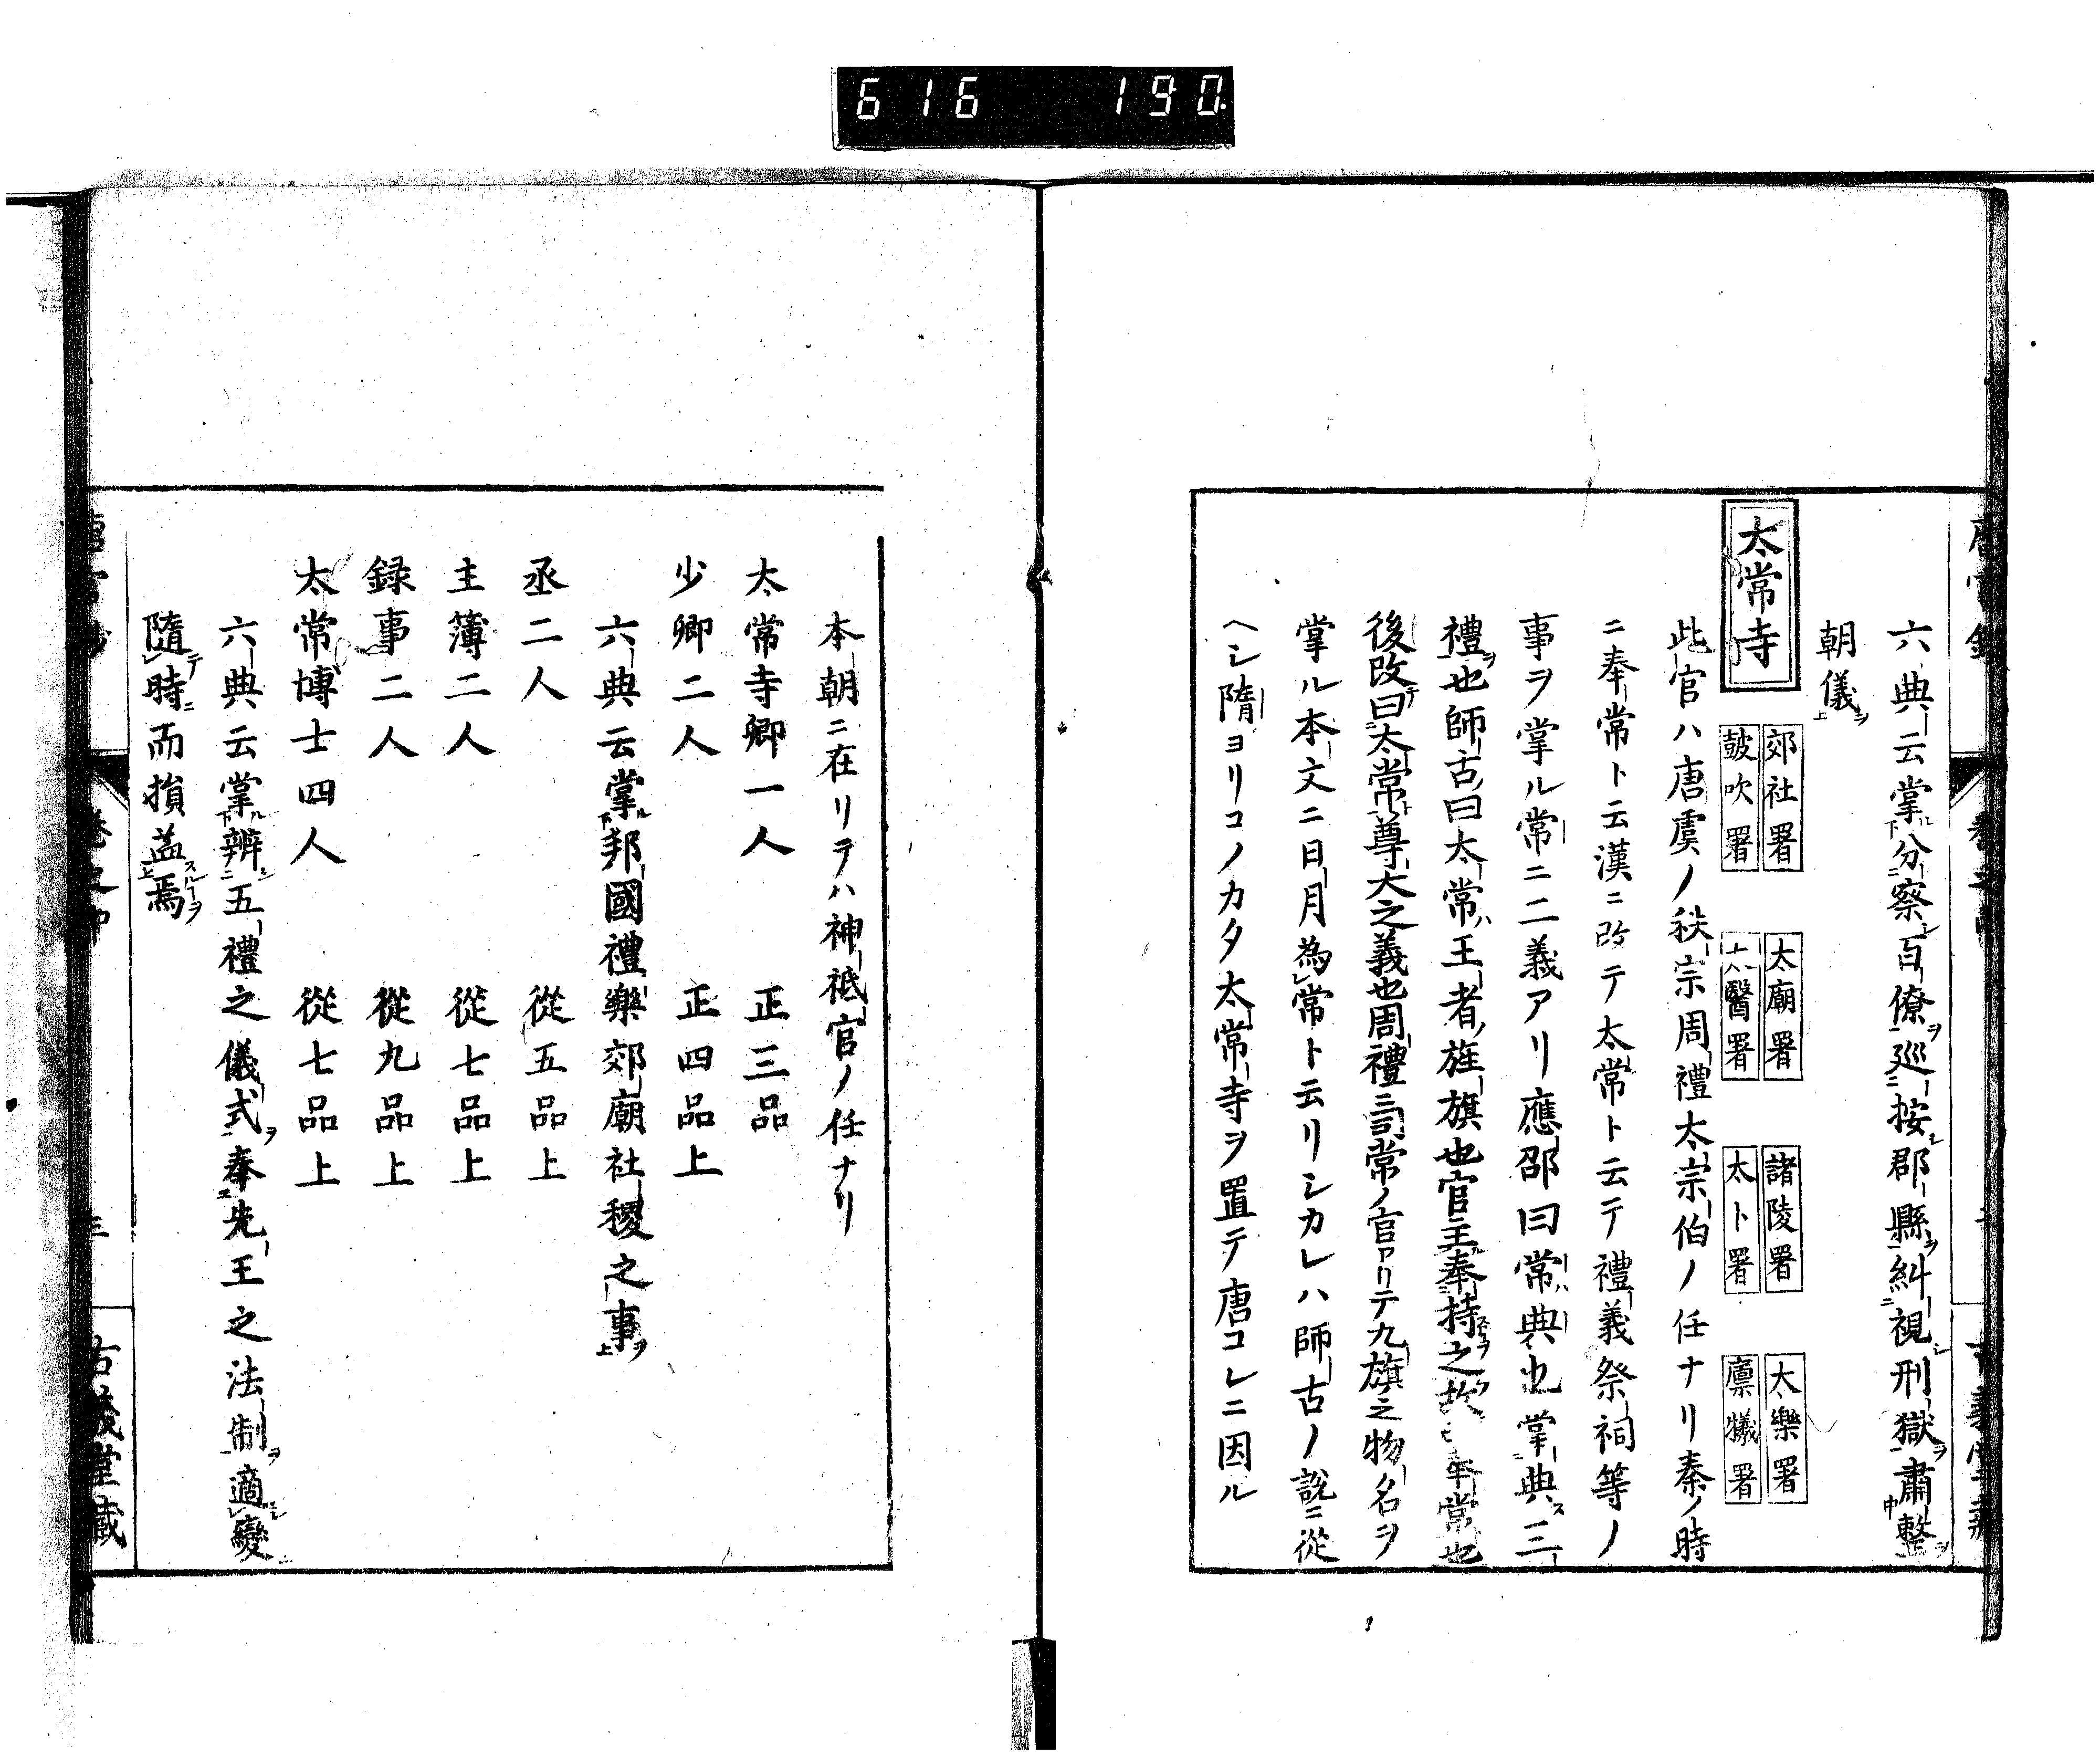 616 190
六典云掌分察百僚巡按郡縣糾視刑獄肅整
朝儀
太常寺
郊社署 太廟署 諸陵署 太樂署
鼓吹署 太醫署 太卜署 廪犧署
此官ハ唐虞ノ秩宗周禮太宗伯ノ任ナリ秦ノ時
ニ奉常ト云漢ニ改テ太常ト云テ禮義祭祠等ノ
事ヲ掌ル常ニ二義アリ應邵曰常典也掌典三
禮也師古曰太常王者旌旗也官主奉持之故曰奉常也
後改曰太常尊大之義也周禮ニ司常ノ官アリテ九旗之物名ヲ
掌ル本文ニ日月為常ト云リシカレハ師古ノ説ニ從
ヘシ隋ヨリコノカタ太常寺ヲ置テ唐コレニ因ル
本朝ニ在リテハ神祗官ノ任ナリ
太常寺卿一人 正三品
少卿二人 正四品上
六典云掌邦國禮樂郊廟社稷之事
丞二人 從五品上
主薄二人 從七品上
録事二人 從九品上
太常博士四人 從七品上
六典云掌辨五禮之儀式奉先王之法制適變
隨時而損益焉
古義堂藏